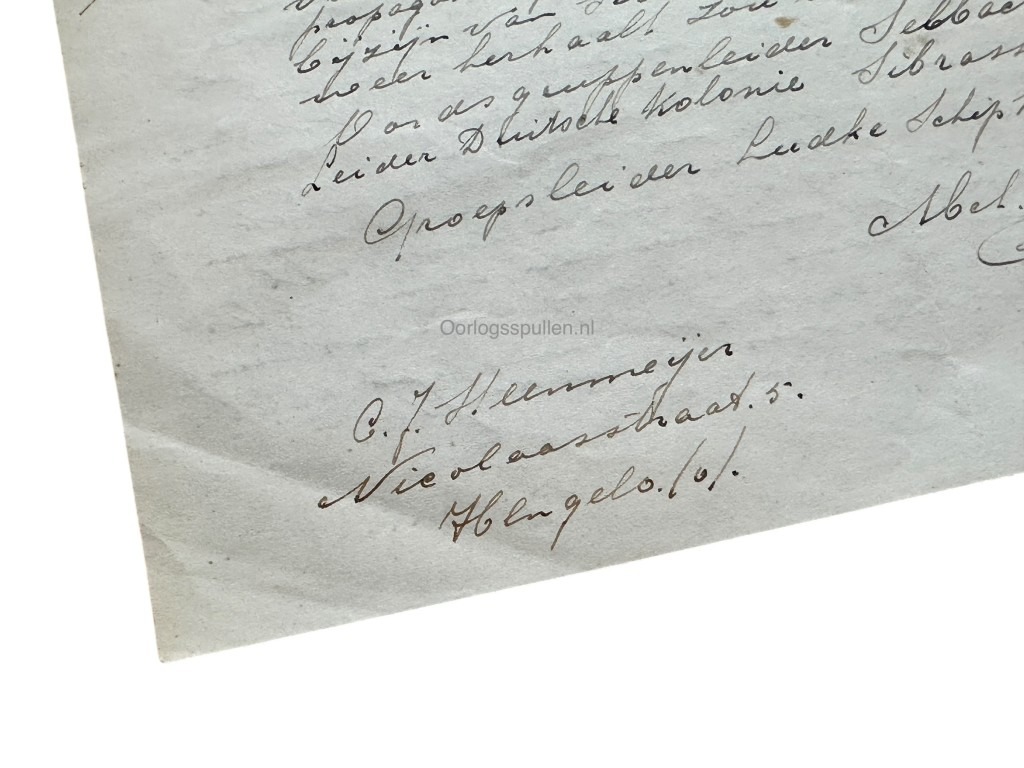 bijzijn van
weer herhaalt zou
Oordsgruppenleider Selbac
Leider Duitsche Kolonie Sibrass
Groepsleider Ludke Schip
Met.
Oorlogsspullen.nl
C. J. Heenmeijer
Nicolaasstraat. 5.
Hengelo. (o).